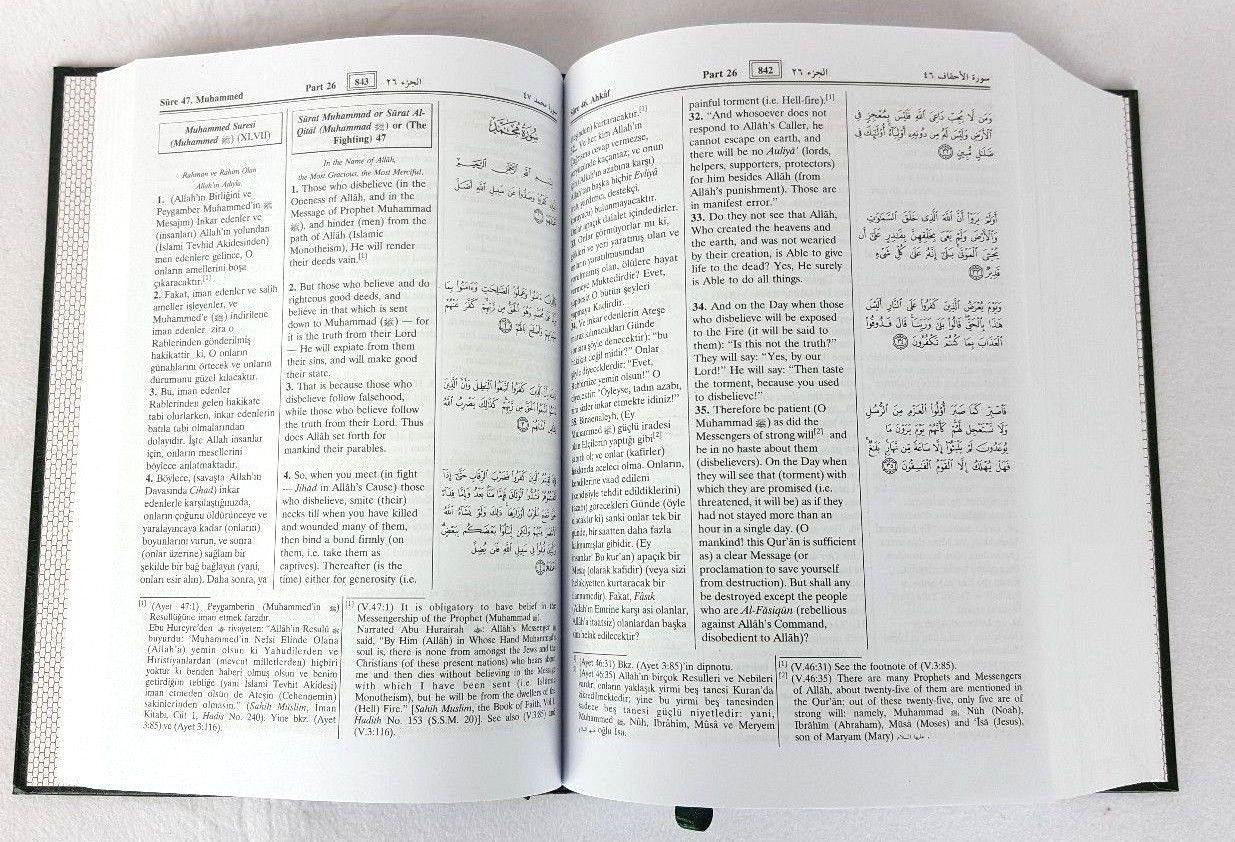 Sûre 46. Ahkâf
Part 26 842 الجزء ٢٦
سورة الأحقاف ٤٦
kurtaracaktır.[1]
Ve her kim Allah'ın
cevap vermezse,
kaçamaz; ve onun
Allah'ın azabına karşı)
başka hiçbir Evliyâ
yardımcı, destekçi,
bulunmayacaktır.
apaçık dalalet içindedirler.
33. Onlar görmüyorlar mı ki,
gökleri ve yeri yaratmış olan ve
yaratılmasından
yorulmamış olan, ölülere hayat
vermeye Muktedirdir? Evet,
O bütün şeyleri
yapmaya Kadirdir.
34. Ve inkar edenlerin Ateşe
maruz bırakılacakları Günde
denecektir): “bu
hakikat değil midir?” Onlar
diyeceklerdir: “Evet,
Rabbimize yemin olsun!” O
diyecektir: “Öyleyse, tadın azabı,
sizler inkar etmekte idiniz!”
35. Binaenaleyh, (Ey
Muhammed ﷺ) güçlü iradesi
olan Elçilerin yaptığı gibi[2]
sabırlı ol; ve onlar (kafirler)
hakkında aceleci olma. Onların,
kendilerine vaad edilen
tehdit edildiklerini)
görecekleri Günde (öyle
sanki onlar tek bir
günde, bir saatten daha fazla
kalmamışlar gibidir. (Ey
insanlar! Bu kur'an) apaçık bir
Mesaj (olarak kafidir) (veya sizi
helakiyetten kurtaracak bir
Fakat, Fâsık
(Allah'ın Emrine karşı asi olanlar,
Allah'a itaatsiz) olanlardan başka
helak edilecektir?
painful torment (i.e. Hell-fire).[1]
32. “And whosoever does not
respond to Allâh's Caller, he
cannot escape on earth, and
there will be no Auliyâ' (lords,
helpers, supporters, protectors)
for him besides Allâh (from
Allâh's punishment). Those are
in manifest error.”
33. Do they not see that Allâh,
Who created the heavens and
the earth, and was not wearied
by their creation, is Able to give
life to the dead? Yes, He surely
is Able to do all things.
34. And on the Day when those
who disbelieve will be exposed
to the Fire (it will be said to
them): “Is this not the truth?”
They will say: “Yes, by our
Lord!” He will say: “Then taste
the torment, because you used
to disbelieve!”
35. Therefore be patient (O
Muhammad ﷺ) as did the
Messengers of strong will[2] and
be in no haste about them
(disbelievers). On the Day when
they will see that (torment) with
which they are promised (i.e.
threatened, it will be) as if they
had not stayed more than an
hour in a single day. (O
mankind! this Qur'ân is sufficient
as) a clear Message (or
proclamation to save yourself
from destruction). But shall any
be destroyed except the people
who are Al-Fâsiqûn (rebellious
against Allâh's Command,
disobedient to Allâh)?
وَمَن لَّا يُجِبْ دَاعِيَ اللَّهِ فَلَيْسَ بِمُعْجِزٍ فِي
الْأَرْضِ وَلَيْسَ لَهُ مِن دُونِهِ أَوْلِيَاءُ أُولَٰئِكَ فِي
ضَلَالٍ مُّبِينٍ ٣٢
أَوَلَمْ يَرَوْا أَنَّ اللَّهَ الَّذِي خَلَقَ السَّمَاوَاتِ
وَالْأَرْضَ وَلَمْ يَعْيَ بِخَلْقِهِنَّ بِقَادِرٍ عَلَىٰ أَن
يُحْيِيَ الْمَوْتَىٰ بَلَىٰ إِنَّهُ عَلَىٰ كُلِّ شَيْءٍ
قَدِيرٌ ٣٣
وَيَوْمَ يُعْرَضُ الَّذِينَ كَفَرُوا عَلَى النَّارِ أَلَيْسَ
هَٰذَا بِالْحَقِّ قَالُوا بَلَىٰ وَرَبِّنَا قَالَ فَذُوقُوا
الْعَذَابَ بِمَا كُنتُمْ تَكْفُرُونَ ٣٤
فَاصْبِرْ كَمَا صَبَرَ أُولُو الْعَزْمِ مِنَ الرُّسُلِ
وَلَا تَسْتَعْجِل لَّهُمْ كَأَنَّهُمْ يَوْمَ يَرَوْنَ مَا
يُوعَدُونَ لَمْ يَلْبَثُوا إِلَّا سَاعَةً مِّن نَّهَارٍ بَلَاغٌ
فَهَلْ يُهْلَكُ إِلَّا الْقَوْمُ الْفَاسِقُونَ ٣٥
(Ayet 46:31) Bkz. (Ayet 3:85)'in dipnotu.
(Ayet 46:35) Allah'ın birçok Resulleri ve Nebileri
vardır, onların yaklaşık yirmi beş tanesi Kuran'da
zikredilmektedir; yine bu yirmi beş tanesinden
sadece beş tanesi güçlü niyetledir: yani,
Muhammed ﷺ, Nûh, Ibrâhîm, Mûsâ ve Meryem
oğlu Isa.
[1] (V.46:31) See the footnote of (V.3:85).
[2] (V.46:35) There are many Prophets and Messengers
of Allâh, about twenty-five of them are mentioned in
the Qur'ân; out of these twenty-five, only five are of
strong will: namely, Muhammad ﷺ, Nûh (Noah),
Ibrâhîm (Abraham), Mûsâ (Moses) and 'Îsâ (Jesus),
son of Maryam (Mary) عليهما السلام.
Sûre 47. Muhammed
Part 26 843 الجزء ٢٦
سورة محمد ٤٧
Muhammed Suresi
(Muhammed ﷺ) (XLVII)
Rahman ve Rahim Olan
Allah'ın Adıyla.
1. (Allah'ın Birliğini ve
Peygamber Muhammed'in ﷺ
Mesajını) Inkar edenler ve
(insanları) Allah'ın yolundan
(Islami Tevhid Akidesinden)
men edenlere gelince, O
onların amellerini boşa
çıkaracaktır.[1]
2. Fakat, iman edenler ve salih
ameller işleyenler, ve
Muhammed'e (ﷺ) indirilene
iman edenler zira o
Rablerinden gönderilmiş
hakikattir ki, O onların
günahlarını örtecek ve onların
durumunu güzel kılacaktır.
3. Bu, iman edenler
Rablerinden gelen hakikate
tabi olurlarken, inkar edenlerin
batıla tabi olmalarından
dolayıdır. İşte Allah insanlar
için, onların mesellerini
böylece anlatmaktadır.
4. Böylece, (savaşta Allah'ın
Davasında Cihad) inkar
edenlerle karşılaştığınızda,
onların çoğunu öldürünceye ve
yaralayıncaya kadar (onların)
boyunlarını vurun, ve sonra
(onlar üzerine) sağlam bir
şekilde bir bağ bağlayın (yani,
onları esir alın). Daha sonra, ya
Sûrat Muhammad or Sûrat Al-
Qitâl (Muhammad ﷺ) or (The
Fighting) 47
In the Name of Allâh,
the Most Gracious, the Most Merciful.
1. Those who disbelieve (in the
Oneness of Allâh, and in the
Message of Prophet Muhammad
ﷺ), and hinder (men) from the
path of Allâh (Islamic
Monotheism), He will render
their deeds vain.[1]
2. But those who believe and do
righteous good deeds, and
believe in that which is sent
down to Muhammad (ﷺ) — for
it is the truth from their Lord
— He will expiate from them
their sins, and will make good
their state.
3. That is because those who
disbelieve follow falsehood,
while those who believe follow
the truth from their Lord. Thus
does Allâh set forth for
mankind their parables.
4. So, when you meet (in fight
— Jihâd in Allâh's Cause) those
who disbelieve, smite (their)
necks till when you have killed
and wounded many of them,
then bind a bond firmly (on
them, i.e. take them as
captives). Thereafter (is the
time) either for generosity (i.e.
سُورَةُ مُحَمَّدٍ
بِسْمِ اللَّهِ الرَّحْمَٰنِ الرَّحِيمِ
كَفَرُوا وَصَدُّوا عَن سَبِيلِ اللَّهِ أَضَلَّ
[1] (Ayet 47:1) Peygamberin (Muhammed'in ﷺ)
Resullüğüne iman etmek farzdır.
Ebu Hureyre'den rivayeten: “Allah'ın Resulü ﷺ
buyurdu: 'Muhammed'in Nefsi Elinde Olana
(Allah'a) yemin olsun ki Yahudilerden ve
Hıristiyanlardan (mevcut milletlerden) hiçbiri
yoktur ki benden haberi olmuş olsun ve benim
getirdiğim tebliğe (yani Islami Tevhit Akidesi)
iman etmeden ölsün de Ateşin (Cehennemin)
sakinlerinden olmasın.” [Sahih Müslim, Iman
Kitabı, Cilt 1, Hadis No. 240). Yine bkz. (Ayet
3:85) ve (Ayet 3:116).
[1] (V.47:1) It is obligatory to have belief in the
Messengership of the Prophet (Muhammad ﷺ).
Narrated Abu Hurairah: Allâh's Messenger ﷺ
said, “By Him (Allâh) in Whose Hand Muhammad's
soul is, there is none from amongst the Jews and the
Christians (of these present nations) who hears about
me and then dies without believing in the Message
with which I have been sent (i.e. Islamic
Monotheism), but he will be from the dwellers of the
(Hell) Fire.” [Sahih Muslim, the Book of Faith, Vol.1
Hadith No. 153 (S.S.M. 20)]. See also (V.3:85) and
(V.3:116).